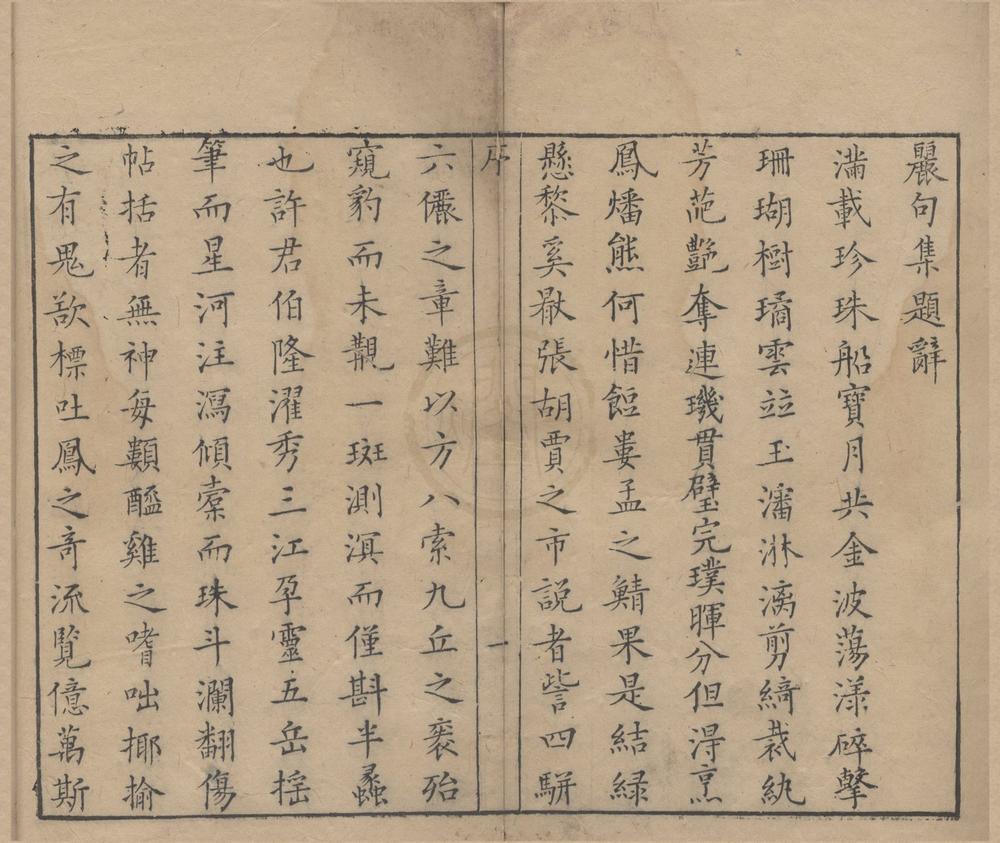 麗句集題辭
滿載珍珠船寶月共金波蕩漾碎擊
珊瑚樹璚雲竝玉瀋淋漓剪綺裁紈
芳葩艷奪連璣貫璧完璞暉分但淂烹
鳳燔熊何惜餖婁孟之鯖果是結緑
懸黎奚猒張胡賈之市説者訾四駢
序
一
六儷之章難以方八索九丘之裘殆
窺豹而未覩一斑測溟而僅斟半蠡
也許君伯隆濯秀三江孕靈五岳揺
筆而星河注瀉傾橐而珠斗瀾翻傷
帖括者無神毎顰醯雞之嗜咄揶揄
之有鬼歘標吐鳳之奇流覽億萬斯